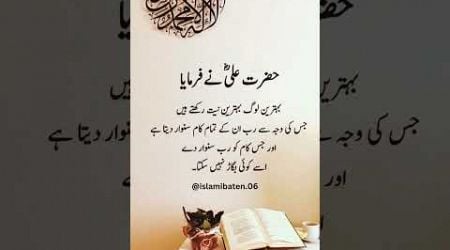 حضرت علیؓ نے فرمایا
بہترین لوگ بہترین نیت رکھتے ہیں
جس کی وجہ سے رب ان کے تمام کام سنوار دیتا ہے
اور جس کام کو رب سنوار دے
اسے کوئی بگاڑ نہیں سکتا۔
@islamibaten.06